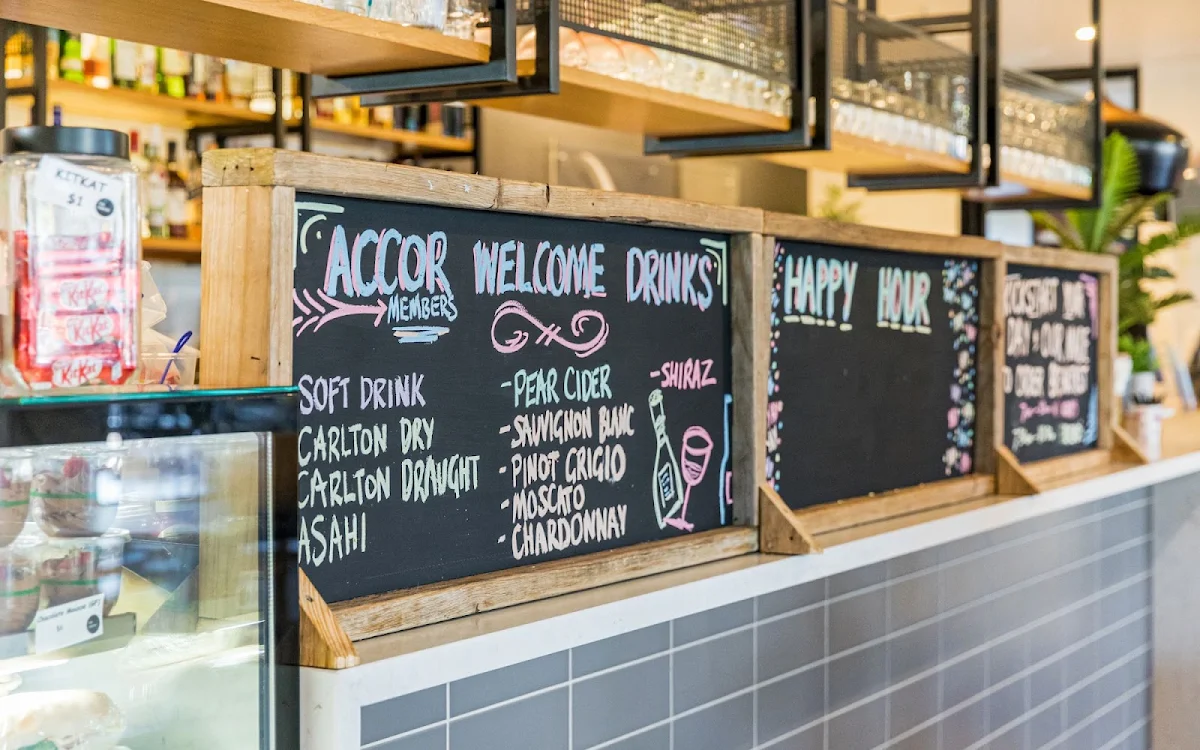 KITKAT
$1
KitKat
KitKat
KitKat
ACCOR WELCOME DRINKS
MEMBERS
SOFT DRINK
CARLTON DRY
CARLTON DRAUGHT
ASAHI
-PEAR CIDER
-SAUVIGNON BLANC
-PINOT GRIGIO
-MOSCATO
-CHARDONNAY
-SHIRAZ
HAPPY HOUR
DAY
Chocolate